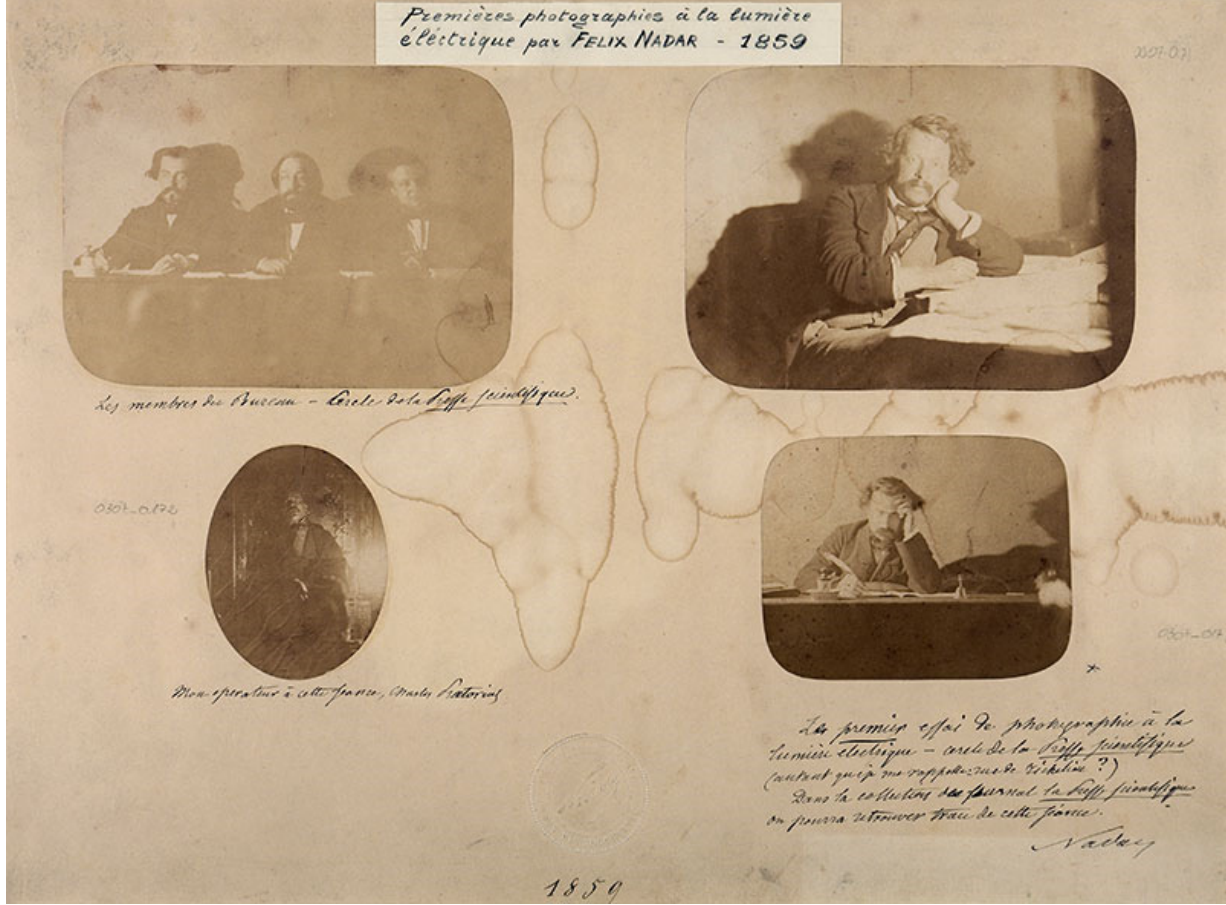 Premières photographies à la lumière
éléctrique par FELIX NADAR - 1859
Les membres du Bureau - Cercle de la Presse scientifique.
0307-0172
Mon opérateur à cette séance, Charles
*
Le premier essai de photographie à la
lumière électrique - cercle de la Presse scientifique
(autant qu'il me rappelle: rue de Richelieu ?)
Dans la collection du journal la Presse scientifique
on pourra retrouver trace de cette séance.
Nadar
1859